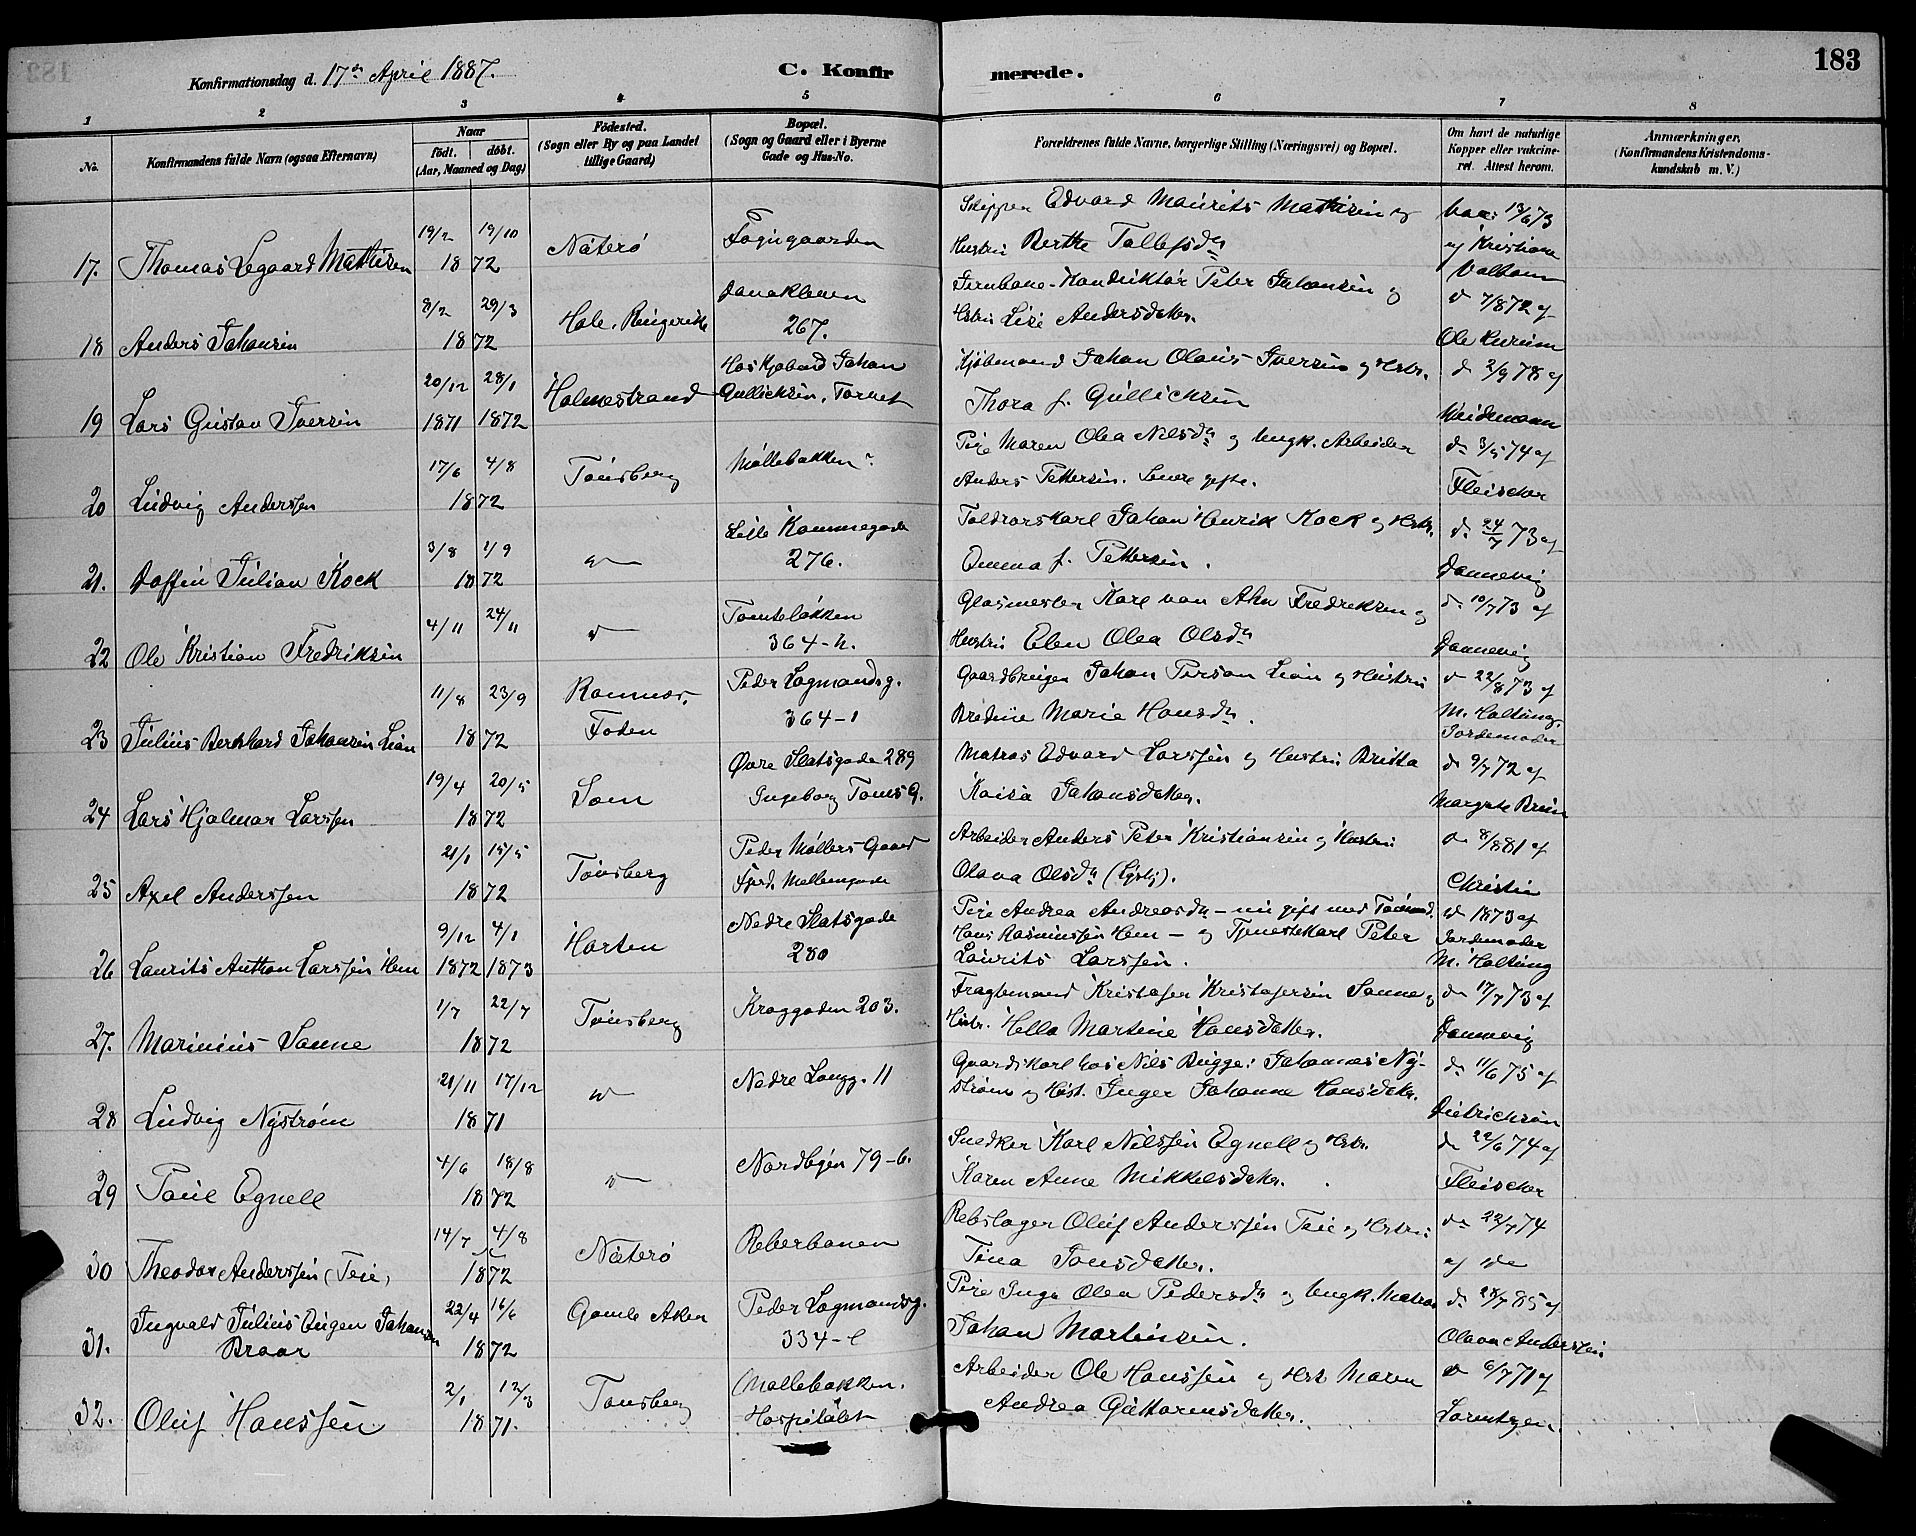 183
Konfirmationsdag d. 17de April 1887.
C. Konfirmerede.
1 2 3 4 5 6 7 8
No.
Konfirmandens fulde Navn (ogsaa Efternavn)
Naar
födt. döbt.
(Aar, Maaned og Dag)
Födested.
(Sogn eller By og paa Landet
tillige Gaard)
Bopæl.
(Sogn og Gaard eller i Byerne
Gade og Hus-No.
Forældrenes fulde Navne, borgerlige Stilling (Næringsvei) og Bopæl.
Om havt de naturlige
Kopper eller vakcine-
ret. Attest herom.
Anmærkninger,
(Konfirmandens Kristendoms-
kundskab m. V.)
17. Thomas Legaard Mathisen 19/2 19/10 1872 Nøterö
Skipper Edvard Maurits Mathisen og
Hustru Berthe Tollefsdr
vac. 13/6 73
af Kristiane
18 Anders Johansen 8/2 29/3 1872 Hole, Ringerike
267.
Jernbane-Konduktør Peter Johansen og
Hstru Lise Andersdatter.
do 7/8 72 af
19 Lars Gustav Iversen 20/12 1871 28/1 1872 Holmestrand
Hos Kjøbmd Johan
Gullichsen, Torvet
Kjöbmand Johan Olaus Iversen og Hstr.
Thora f. Gullichsen
do 2/9 78 af
Heidemann
20 Ludvig Anderssen 17/6 4/8 1872 Tönsberg
Møllebakken
Pige Maren Olea Nilsdr og ungk. Arbeider
Anders Pettersen. Senere gifte.
do 3/5 74 af
Fleischer
21. Doffin Julian Kock 3/8 1/9 1872 do
276.
Toldrorskarl Johan Henrik Kock og Hstr.
Emma f. Pettersen.
do 24/7 73 af
Dannevig
22 Ole Kristian Fredriksen 4/11 24/11 do
Tomteløkken
364-h.
Glasmester Karl van Ahn Fredriksen og
Hustru Elen Olea Olsdr
do 10/7 73 af
Dannevig
23 Julius Bernhard Johansen Lian 11/8 23/9 1872 Ramnes,
Foden
Peder Lagmandsg.
364-1
Gaardbruger Johan Person Lian og Hustru
Bredine Marie Hansdr.
do 22/8 73 af
M. Holtung,
Jordemoder
24 Lars Hjalmar Larssen 19/4 20/5 1872 Sem
Øvre Slotsgade 289
Ingeborg Toms G.
Matros Edvard Larssen og Hustru Britta
Kaisa Johansdatter.
do 9/7 72 af
Margrete Bruun
25 Axel Anderssen 21/1 15/5 1872 Tönsberg
Peder Møllers Gaard
Arbeider Anders Peter Kristiansen og Hustru
Olava Olsdr
do 8/8 81 af
Christie
26 Laurits Anthon Larssen Hem 9/12 1872 4/1 1873 Horten
Nedre Slotsgade
280
Pige Andrea Andreasdr - nu gift med
Hans Rasmussen Hem - og Tjenestekarl Peter
Laurits Larssen.
do 1873 af
Jordemoder
M. Holtung
27. Marinius Sanne 1/7 22/7 1872 Tönsberg
Kroggaden 203.
Fragtemand Kristofer Kristofersen Sanne og
Hstr. Hella Martine Hansdatter.
do 17/7 73 af
Dannevig
28 Ludvig Nyström 21/11 17/12 1871 do
Nedre Langg. 11
Gaardskarl hos Nils Bugge: Johannes Ny-
ström og Hust. Inger Johanne Hansdatter.
do 11/6 75 af
Dietrichson
29 Paul Egnell 4/6 18/8 1872 do
Nordbyen 79-b.
Snedker Karl Nilssen Egnell og Hstr.
Karen Anne Mikkelsdatter.
do 22/6 74 af
Fleischer
30 Theodor Anderssen (Teie) 14/7 4/8 1872 Nøterö
Reberbanen
Rebslager Oluf Anderssen Teie og Hstru:
Tina Tonsdatter.
do 22/7 74
af do
31. Ingvald Julius Eugen Johansen
Braar
22/4 16/6 1872 Gamle Aker
Peder Lagmandsg.
334-c
Pige Inga Olea Pedersdr og ungk. Matros
Johan Martinsen.
do 28/7 85 af
Olava Anderssen
32. Oluf Hanssen 2/1 12/3 1871. Tönsberg
Møllebakken.
Hospitalet
Arbeider Ole Hanssen og Hst. Maren
Andrea Guttormsdatter.
do 6/7 71 af
Lorentzen.